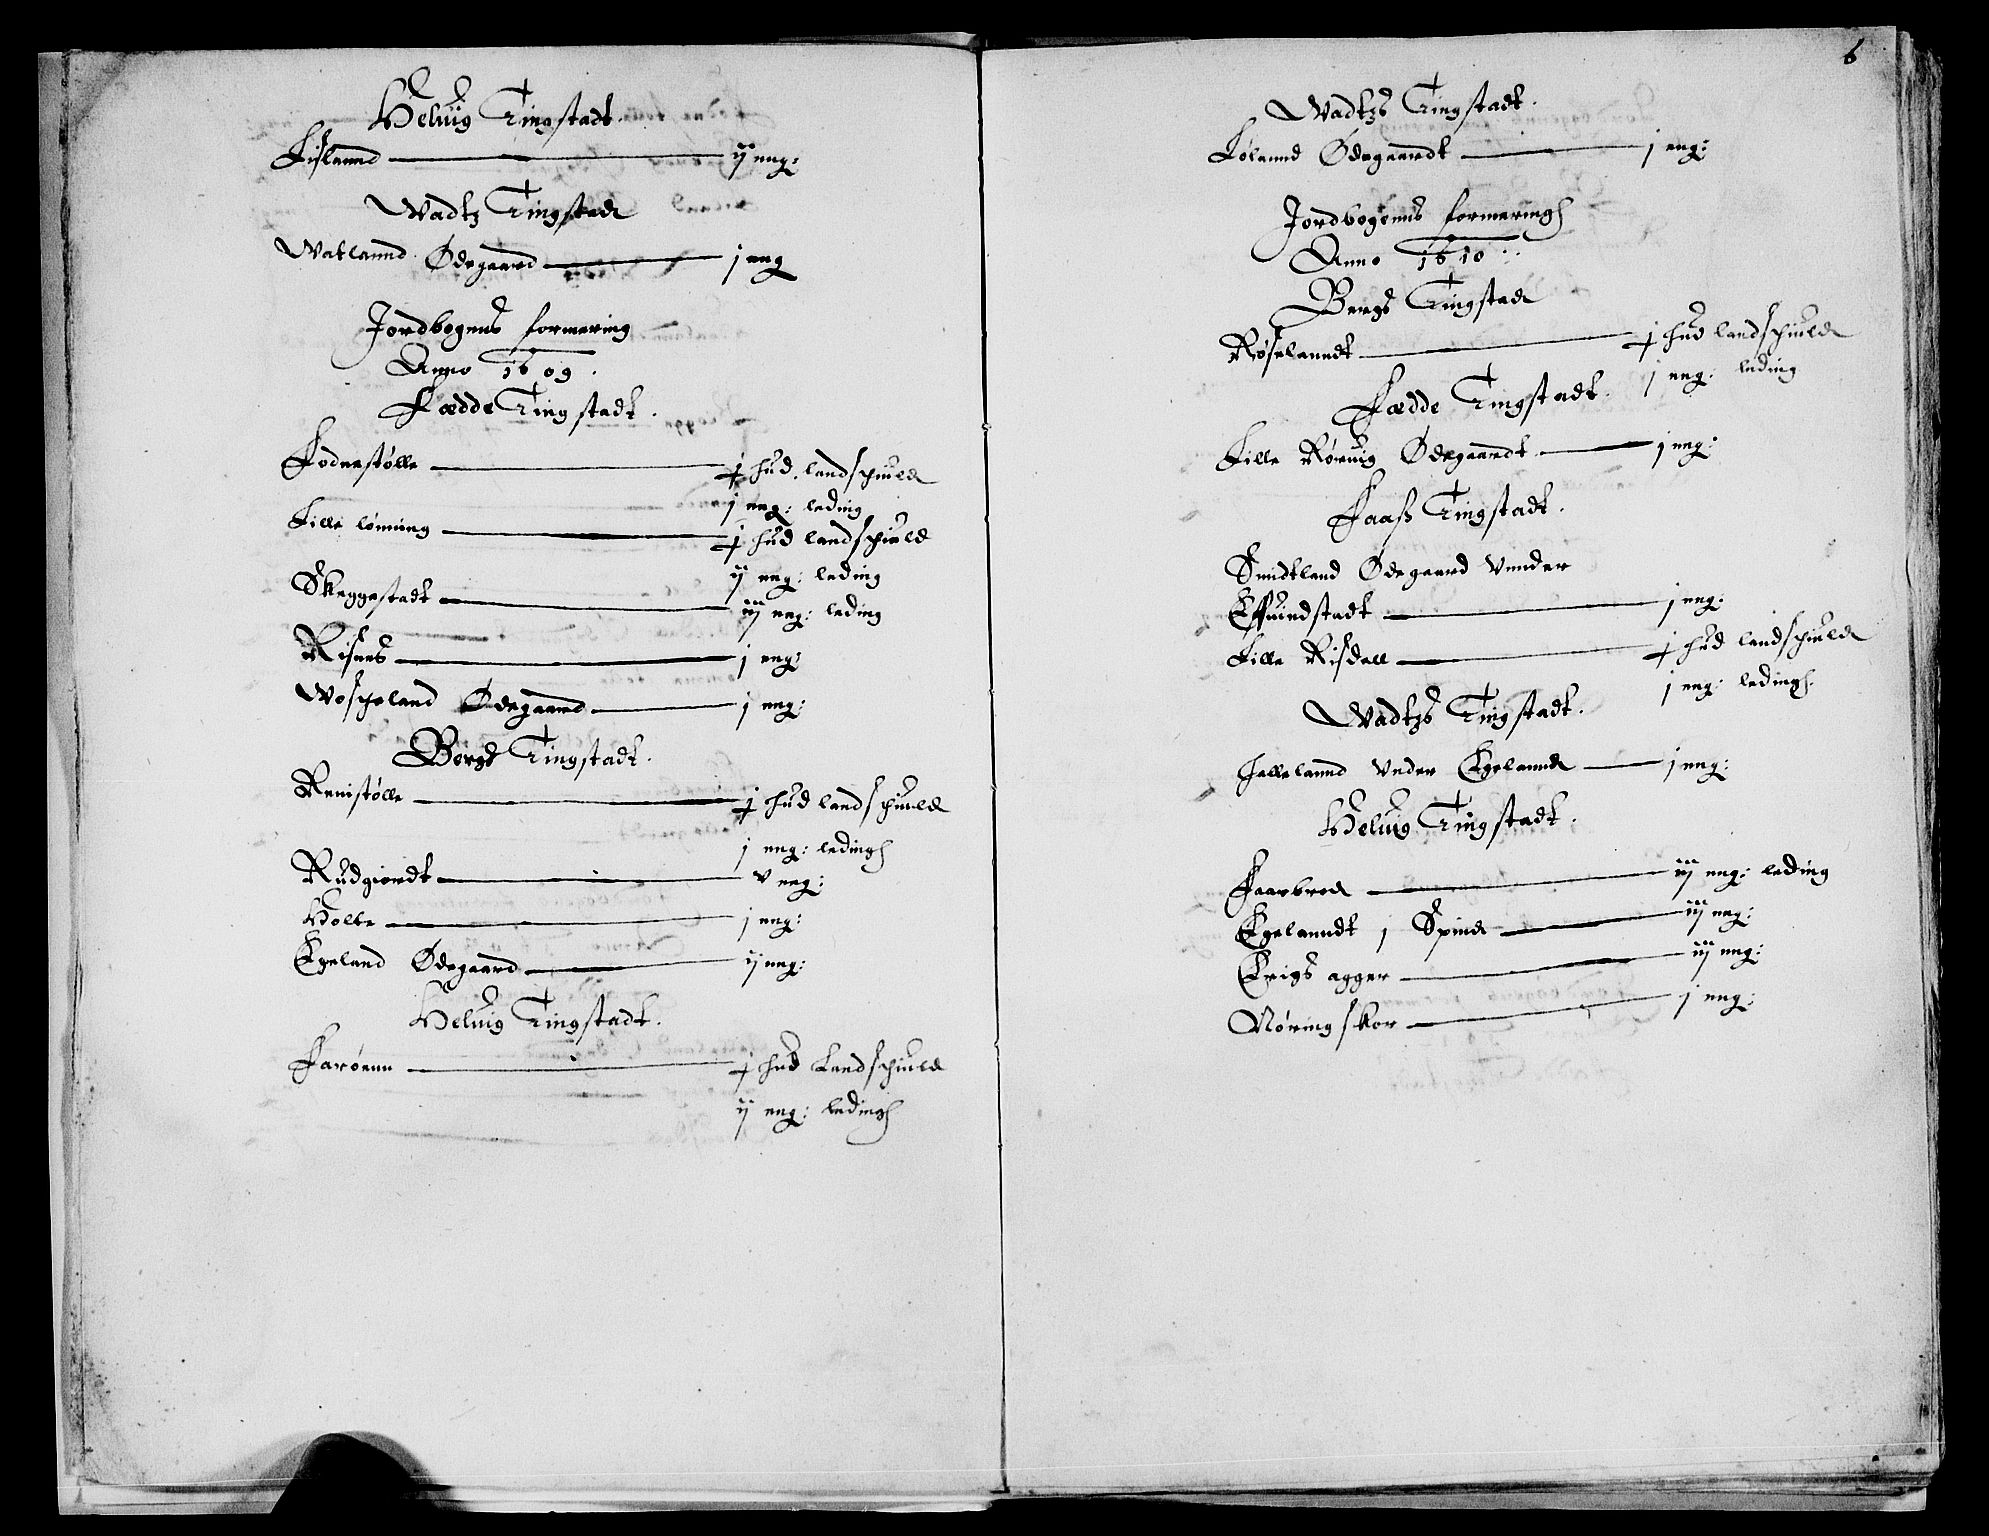 Heluig Tingstadt.
Lislannd ij eng:
Wadtz Tingstad
Watlannd Ødegaard j eng
Jordbogens formering
Anno 1609.
Fedde Tingstadt.
Fodnestølle j hud landschiuld
j eng: leding
Lille lønning j hud landschiuld
ij eng: leding
Skeggestadt iij eng: leding
Risnes j eng:
Wospeland Ødegaard j eng:
Bergs Tingstadt.
Renistølle j hud landschiuld
j eng: leding
Rudgierdt v eng:
Holte j eng:
Egeland Ødegaard ij eng:
Heluig Tingstadt.
Farøenn j hud Landschiuld
ij eng: leding
6
Wadtzs Tingstadt.
Lølannd Ødegaardt j eng:
Jordbogenns formering
Anno 1610
Bergs Tingstad
Røselanndt j hud landschiuld
j eng: leding
Fedde Tingstadt.
Lille Røruig Ødegaardt j eng:
Faaß Tingstadt.
Smidtland Ødegaard Vnnder
Effuindstadt j eng:
Lille Risdall j hud landschiuld
j eng: leding
Wadtzs Tingstadt.
Jallelannd Vnder Egelannd j eng:
Heluig Tingstadt.
Faarbrod iij eng: leding
Egelanndt j Spind iij eng:
Erigs agger iij eng:
Nøringskor j eng: